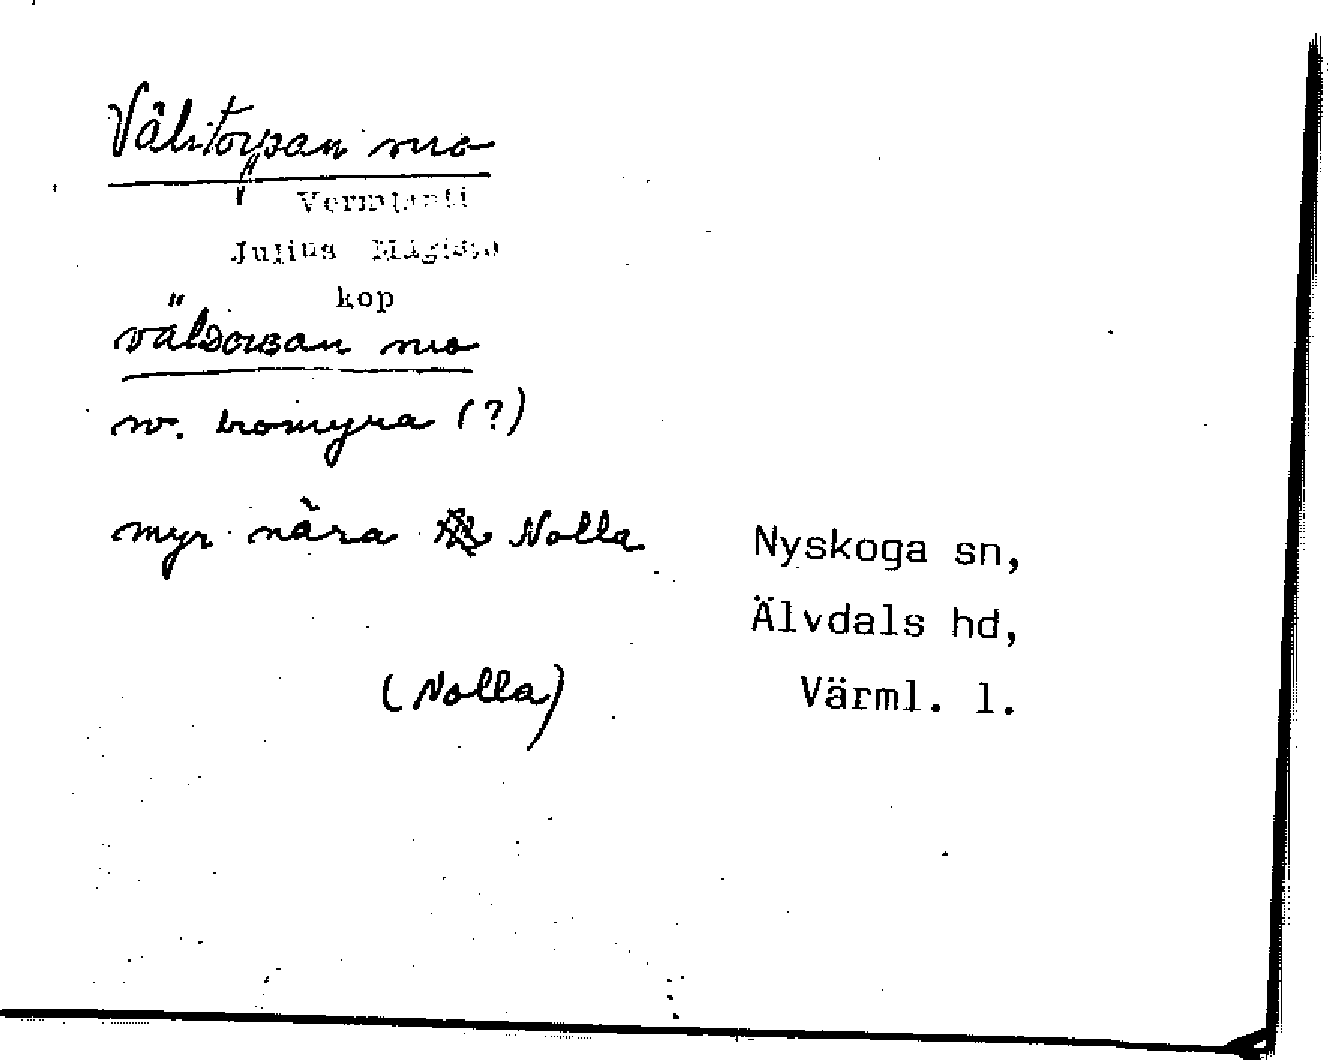 Välitorpan suo
Vermlanti
Julius Mägiste
kop
väliᴅorʙan suo
sv. bromyra (?)
myr nära Nolla
(Nolla)
Nyskoga sn,
Älvdals hd,
Värml. l.